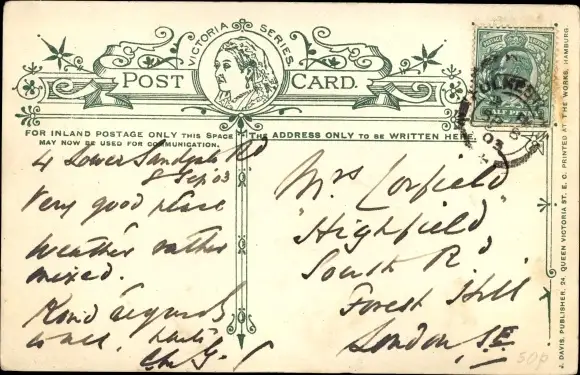 VICTORIA SERIES
POST CARD.
FOR INLAND POSTAGE ONLY THIS SPACE
MAY NOW BE USED FOR COMMUNICATION.
THE ADDRESS ONLY TO BE WRITTEN HERE.
4 Lower Sandgate Rd
8 Sep 03
Very good place
Weather rather
mixed.
Kind regards
to all,
Mrs Corfield
"Highfield"
South Rd
Forest Hill
London, SE
FOLKEST
SP 8
03
50p
J. DAVIS, PUBLISHER, 24 QUEEN VICTORIA ST. E.C. PRINTED AT THE WORKS, HAMBURG.